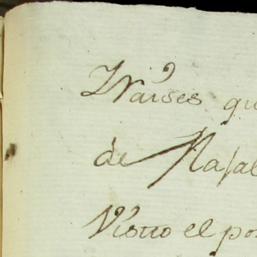 Naises qu
de Rafal
Visto el po